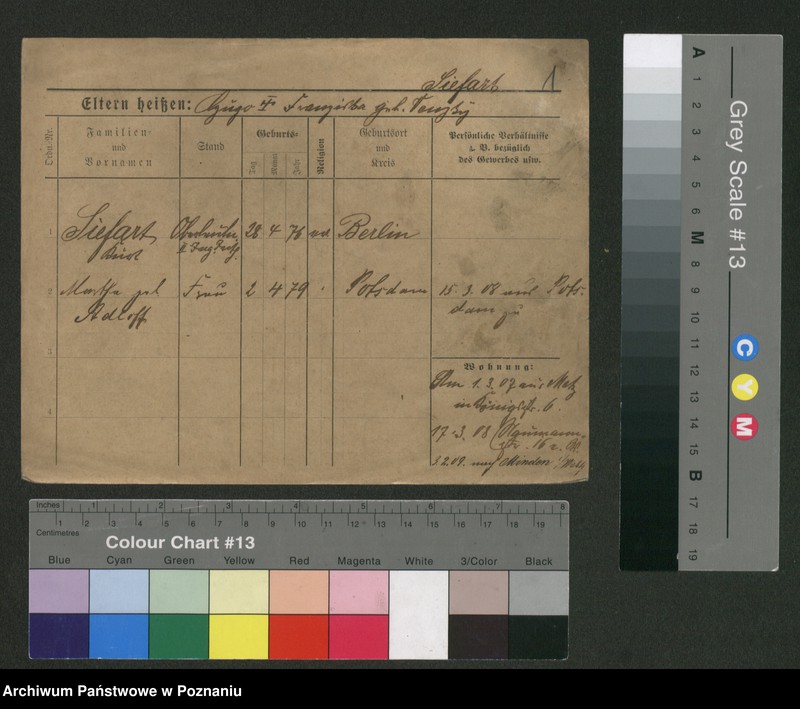 Siefart 1
Eltern heißen: Hugo Franziska geb. Tenzky
Ordn.-Nr.
Familien- und Vornamen
Stand
Geburts-
Tag Monat Jahr
Religion
Geburtsort und Kreis
Persönliche Verhältnisse
z. B. bezüglich
des Gewerbes usw.
1 Siefart 28 4 76 Berlin
Kurt
2 Martha geb. Frau 2 4 79 Potsdam 15.3.08 aus Pots-
Adloff dam zu
3
Wohnung:
Am 1.3.07 aus Metz
in Königstr. 6.
4
17.3.08 Naumann
str. 15
3.2.09. nach Minden i/Westf.
A 1 2 3 4 5 6 M 8 9 10 11 12 13 14 15 B 17 18 19
Grey Scale #13
C Y M
Inches 1 2 3 4 5 6 7 8
Centimetres 1 2 3 4 5 6 7 8 9 10 11 12 13 14 15 16 17 18 19
Colour Chart #13
Blue Cyan Green Yellow Red Magenta White 3/Color Black
Archiwum Państwowe w Poznaniu